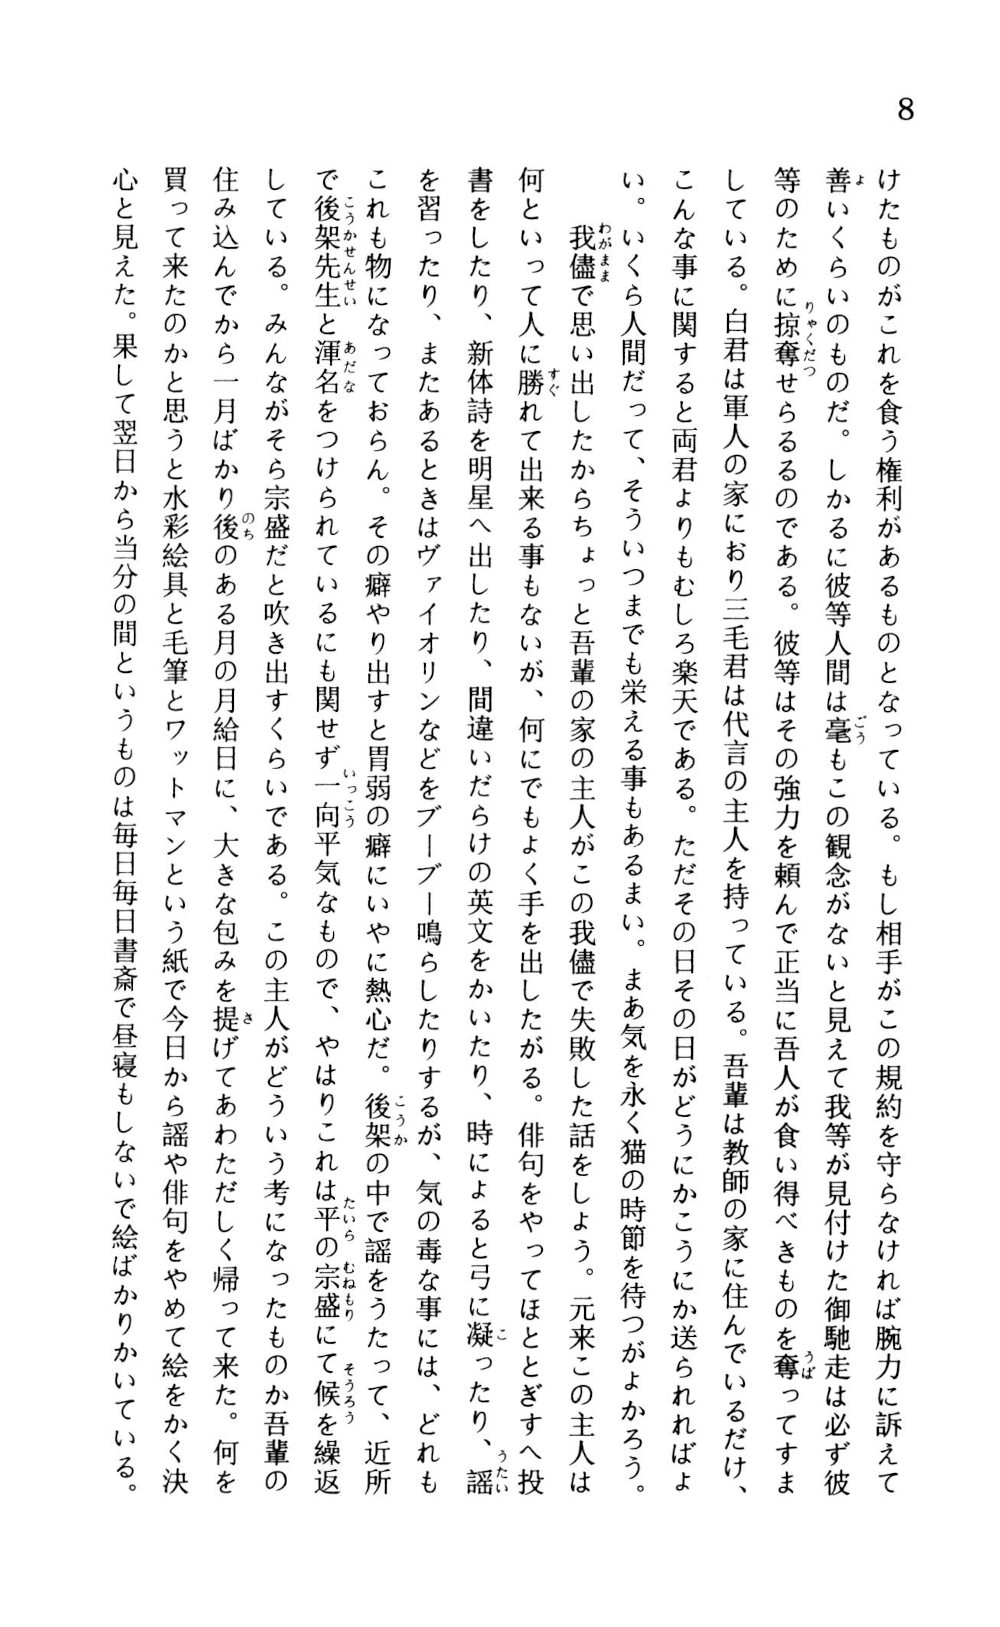 8
けたものがこれを食う権利があるものとなっている。もし相手がこの規約を守らなければ腕力に訴えて
善いくらいのものだ。しかるに彼等人間は毫もこの観念がないと見えて我等が見付けた御馳走は必ず彼
等のために掠奪せらるるのである。彼等はその強力を頼んで正当に吾人が食い得べきものを奪ってすま
している。白君は軍人の家におり三毛君は代言の主人を持っている。吾輩は教師の家に住んでいるだけ、
こんな事に関すると両君よりもむしろ楽天である。ただその日その日がどうにかこうにか送られればよ
い。いくら人間だって、そういつまでも栄える事もあるまい。まあ気を永く猫の時節を待つがよかろう。
我儘で思い出したからちょっと吾輩の家の主人がこの我儘で失敗した話をしよう。元来この主人は
何といって人に勝れて出来る事もないが、何にでもよく手を出したがる。俳句をやってほととぎすへ投
書をしたり、新体詩を明星へ出したり、間違いだらけの英文をかいたり、時によると弓に凝ったり、謡
を習ったり、またあるときはヴァイオリンなどをブーブー鳴らしたりするが、気の毒な事には、どれも
これも物になっておらん。その癖やり出すと胃弱の癖にいやに熱心だ。後架の中で謡をうたって、近所
で後架先生と渾名をつけられているにも関せず一向平気なもので、やはりこれは平の宗盛にて候を繰返
している。みんながそら宗盛だと吹き出すくらいである。この主人がどういう考になったものか吾輩の
住み込んでから一月ばかり後のある月の月給日に、大きな包みを提げてあわただしく帰って来た。何を
買って来たのかと思うと水彩絵具と毛筆とワットマンという紙で今日から謡や俳句をやめて絵をかく決
心と見えた。果して翌日から当分の間というものは毎日毎日書斎で昼寝もしないで絵ばかりかいている。